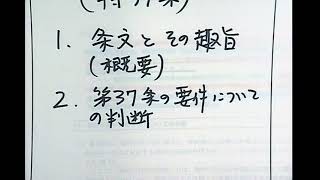 1. 条文とその趣旨
(概要)
2. 第37条の要件について
の判断